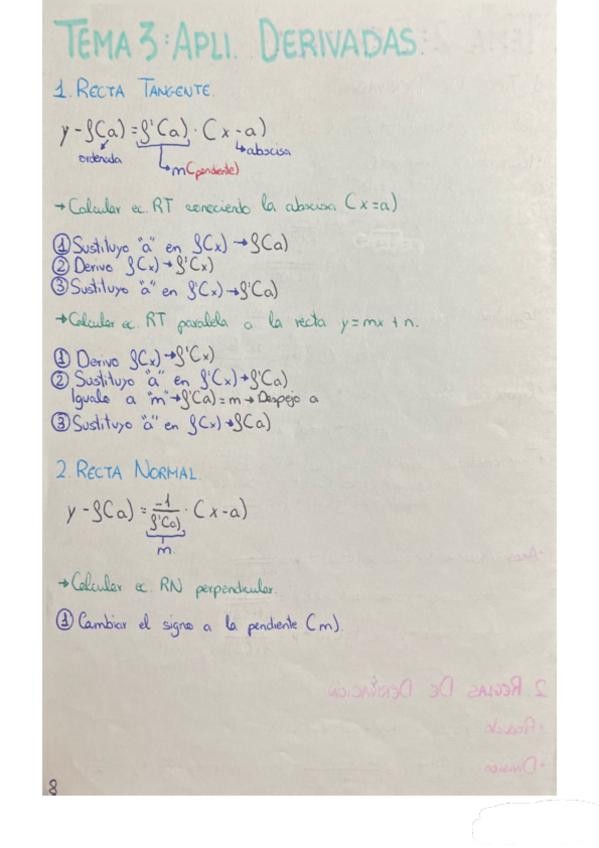 TEMA 3: APLI. DERIVADAS.
1. RECTA TANGENTE.
y - f(a) = f'(a) · (x - a)
ordenada
abscisa
m (pendiente)
→ Calcular ec. RT conociendo la abscisa (x = a)
① Sustituyo "a" en f(x) → f(a)
② Derivo f(x) → f'(x)
③ Sustituyo "a" en f'(x) → f'(a)
→ Calcular ec. RT paralela a la recta y = mx + n.
① Derivo f(x) → f'(x)
② Sustituyo "a" en f'(x) → f'(a)
Igualo a "m" → f'(a) = m → Despejo a
③ Sustituyo "a" en f(x) → f(a)
2. RECTA NORMAL.
y - f(a) = -1/f'(a) · (x - a)
m
→ Calcular ec. RN perpendicular.
① Cambiar el signo a la pendiente (m).
2 REGLAS DE DERIVACION
· Producto
· Division
8